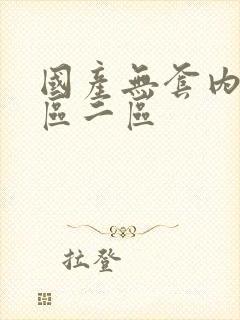 國產無套内
區二區
拉登